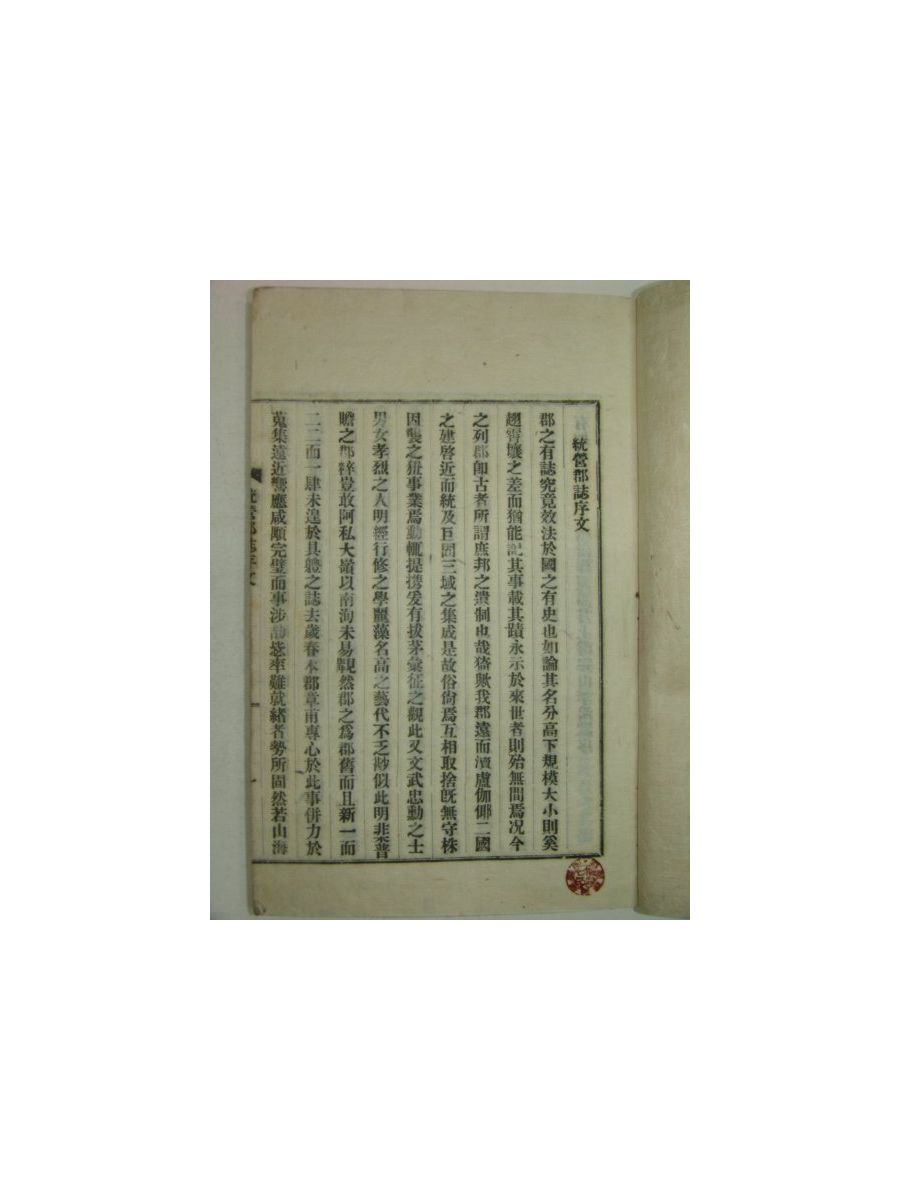 統營郡誌序文
郡之有誌究竟效法於國之有史也如論其名分高下規模大小則奚
趐霄壤之差而猶能記其事載其蹟永示於來世者則殆無間焉况今
之列郡卽古者所謂庶邦之遺制也哉猗歟我郡遠而瀆盧伽倻二國
之建啓近而統及巨固三域之集成是故俗尙焉互相取捨旣無守株
因襲之狃事業焉動輒提携爰有拔茅彙征之觀此又文武忠勳之士
男女孝烈之人明經行修之學麗藻名高之藝代不乏尠似此明非普
瞻之郡粹豈敢阿私大嶺以南洵未易覯然郡之爲郡舊而且新一而
二二而一肆未遑於具體之誌去歲春本郡章甫專心於此事併力於
蒐集遠近響應咸順完璧而事涉刱垯率難就緖者勢所固然若山海
統營郡誌序文 一